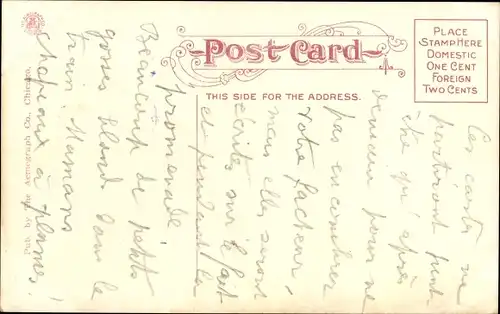 Post Card
THIS SIDE FOR THE ADDRESS.
PLACE
STAMP HERE
DOMESTIC
ONE CENT
FOREIGN
TWO CENTS
Pub. by the Acmegraph Co., Chicago.
Ces cartes ne
partiront peut-
être qu'après
demain pour ne
pas encombrer
votre facteur,
mais elles seront
écrites sur le fait
et pendant la
promenade
Beaucoup de petits
gosses blonds dans le
train. Mamans
chapeaux à plumes!